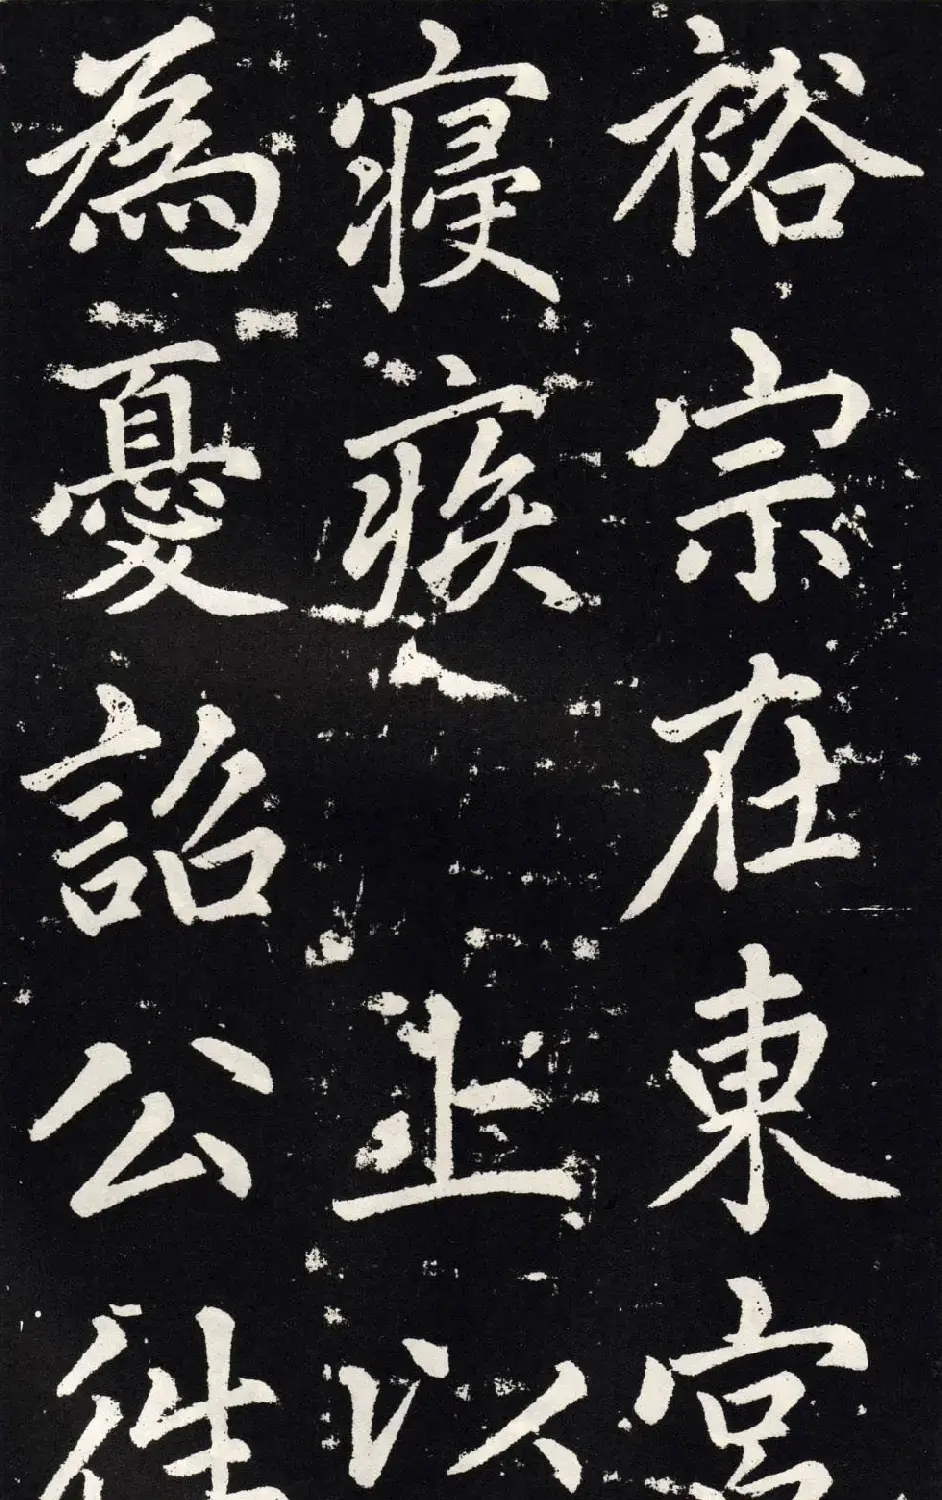 裕宗在東宮
寢疾上以
為憂詔公往